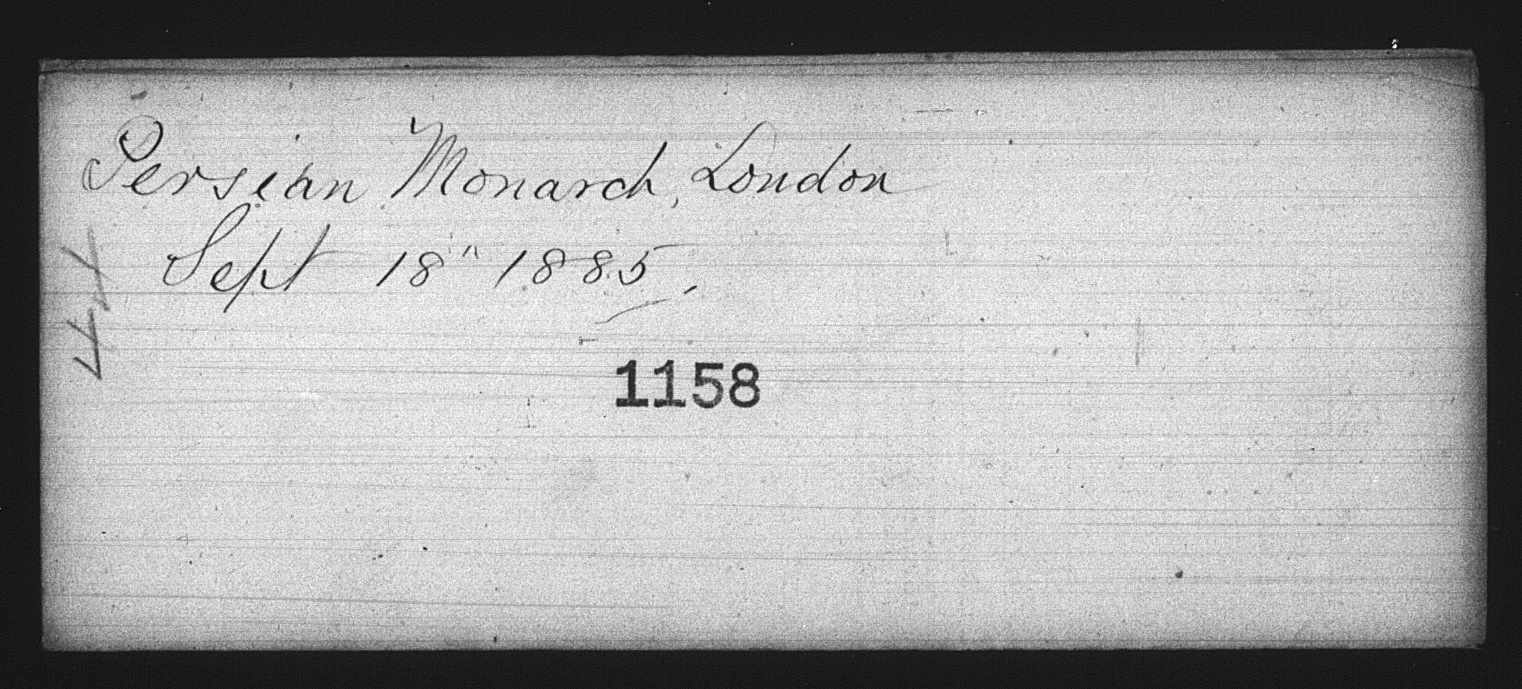 Persian Monarch, London
Sept 18" 1885.
1158